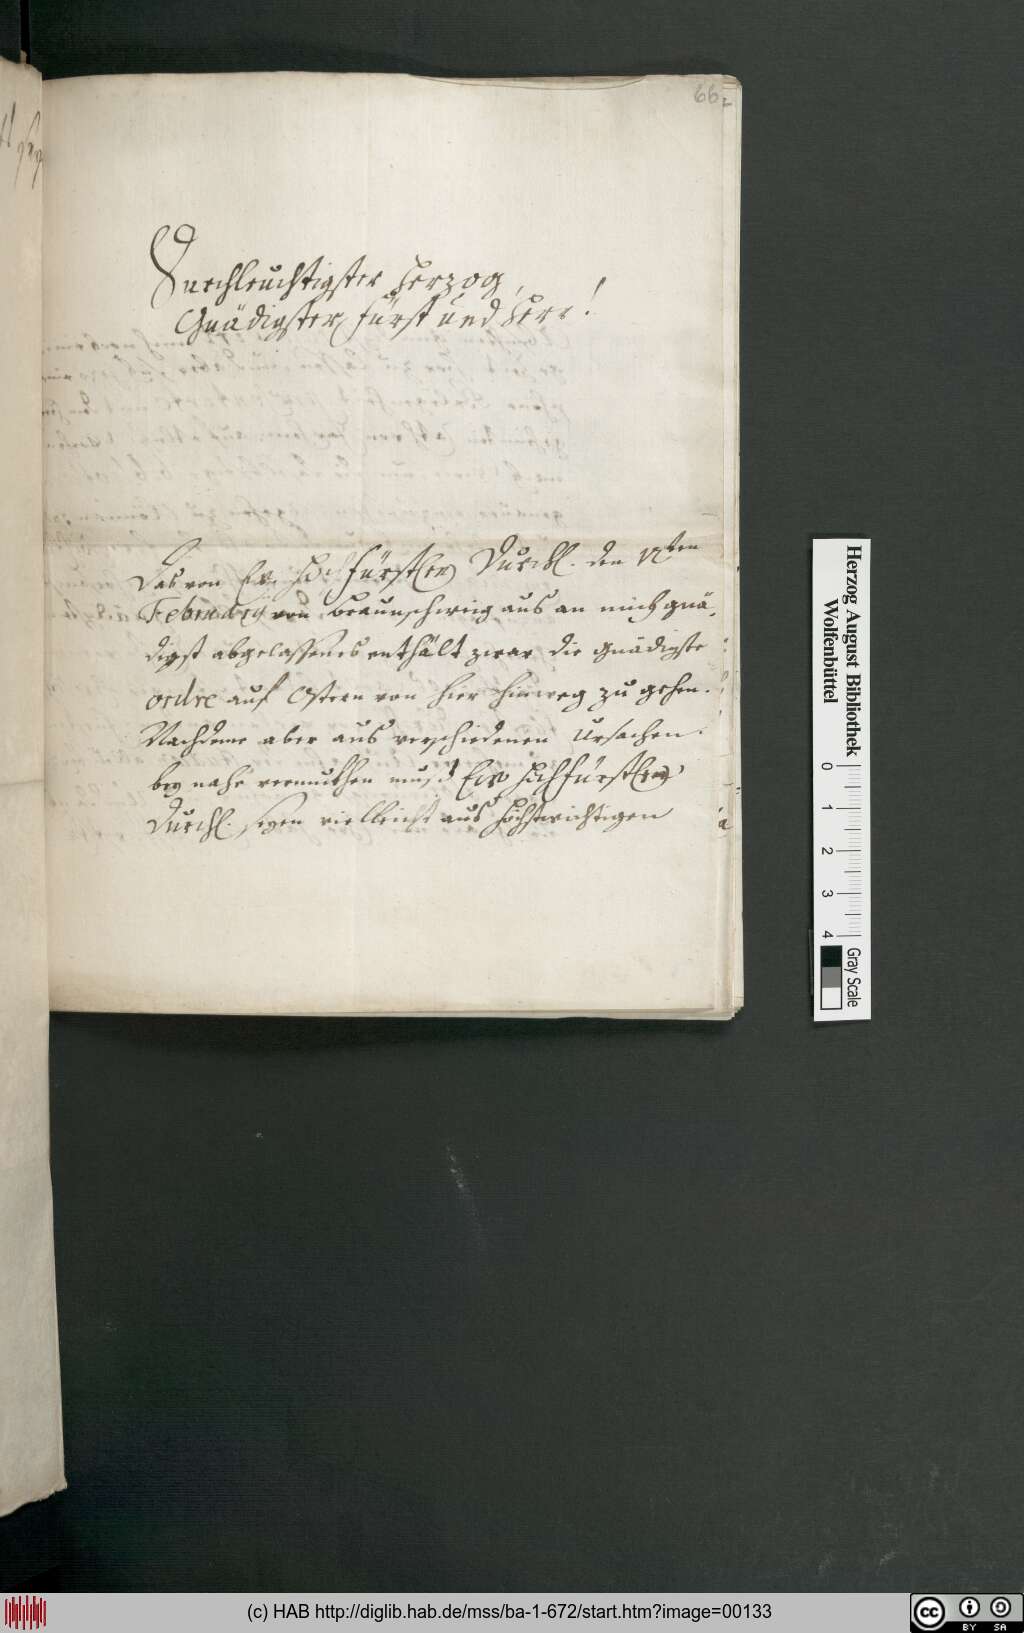 66
Durchleuchtigster Herzog,
Gnädigster Fürst und Herr!
Das von Ew. Hochfürstler Durchl. den 12ten
February von Braunschweig aus an mich gnä-
digst abgelassenes enthält zwar die gnädigste
ordre auf Ostern von hier hinweg zu gehen.
Nachdeme aber aus verschiedenen Ursachen
bey nahe vermuthen muß Ew Hochfürstler
Durchl. seyen vielleicht aus höchstwichtigen
Herzog August Bibliothek
Wolfenbüttel
0 1 2 3 4
Gray Scale
(c) HAB http://diglib.hab.de/mss/ba-1-672/start.htm?image=00133
cc BY SA